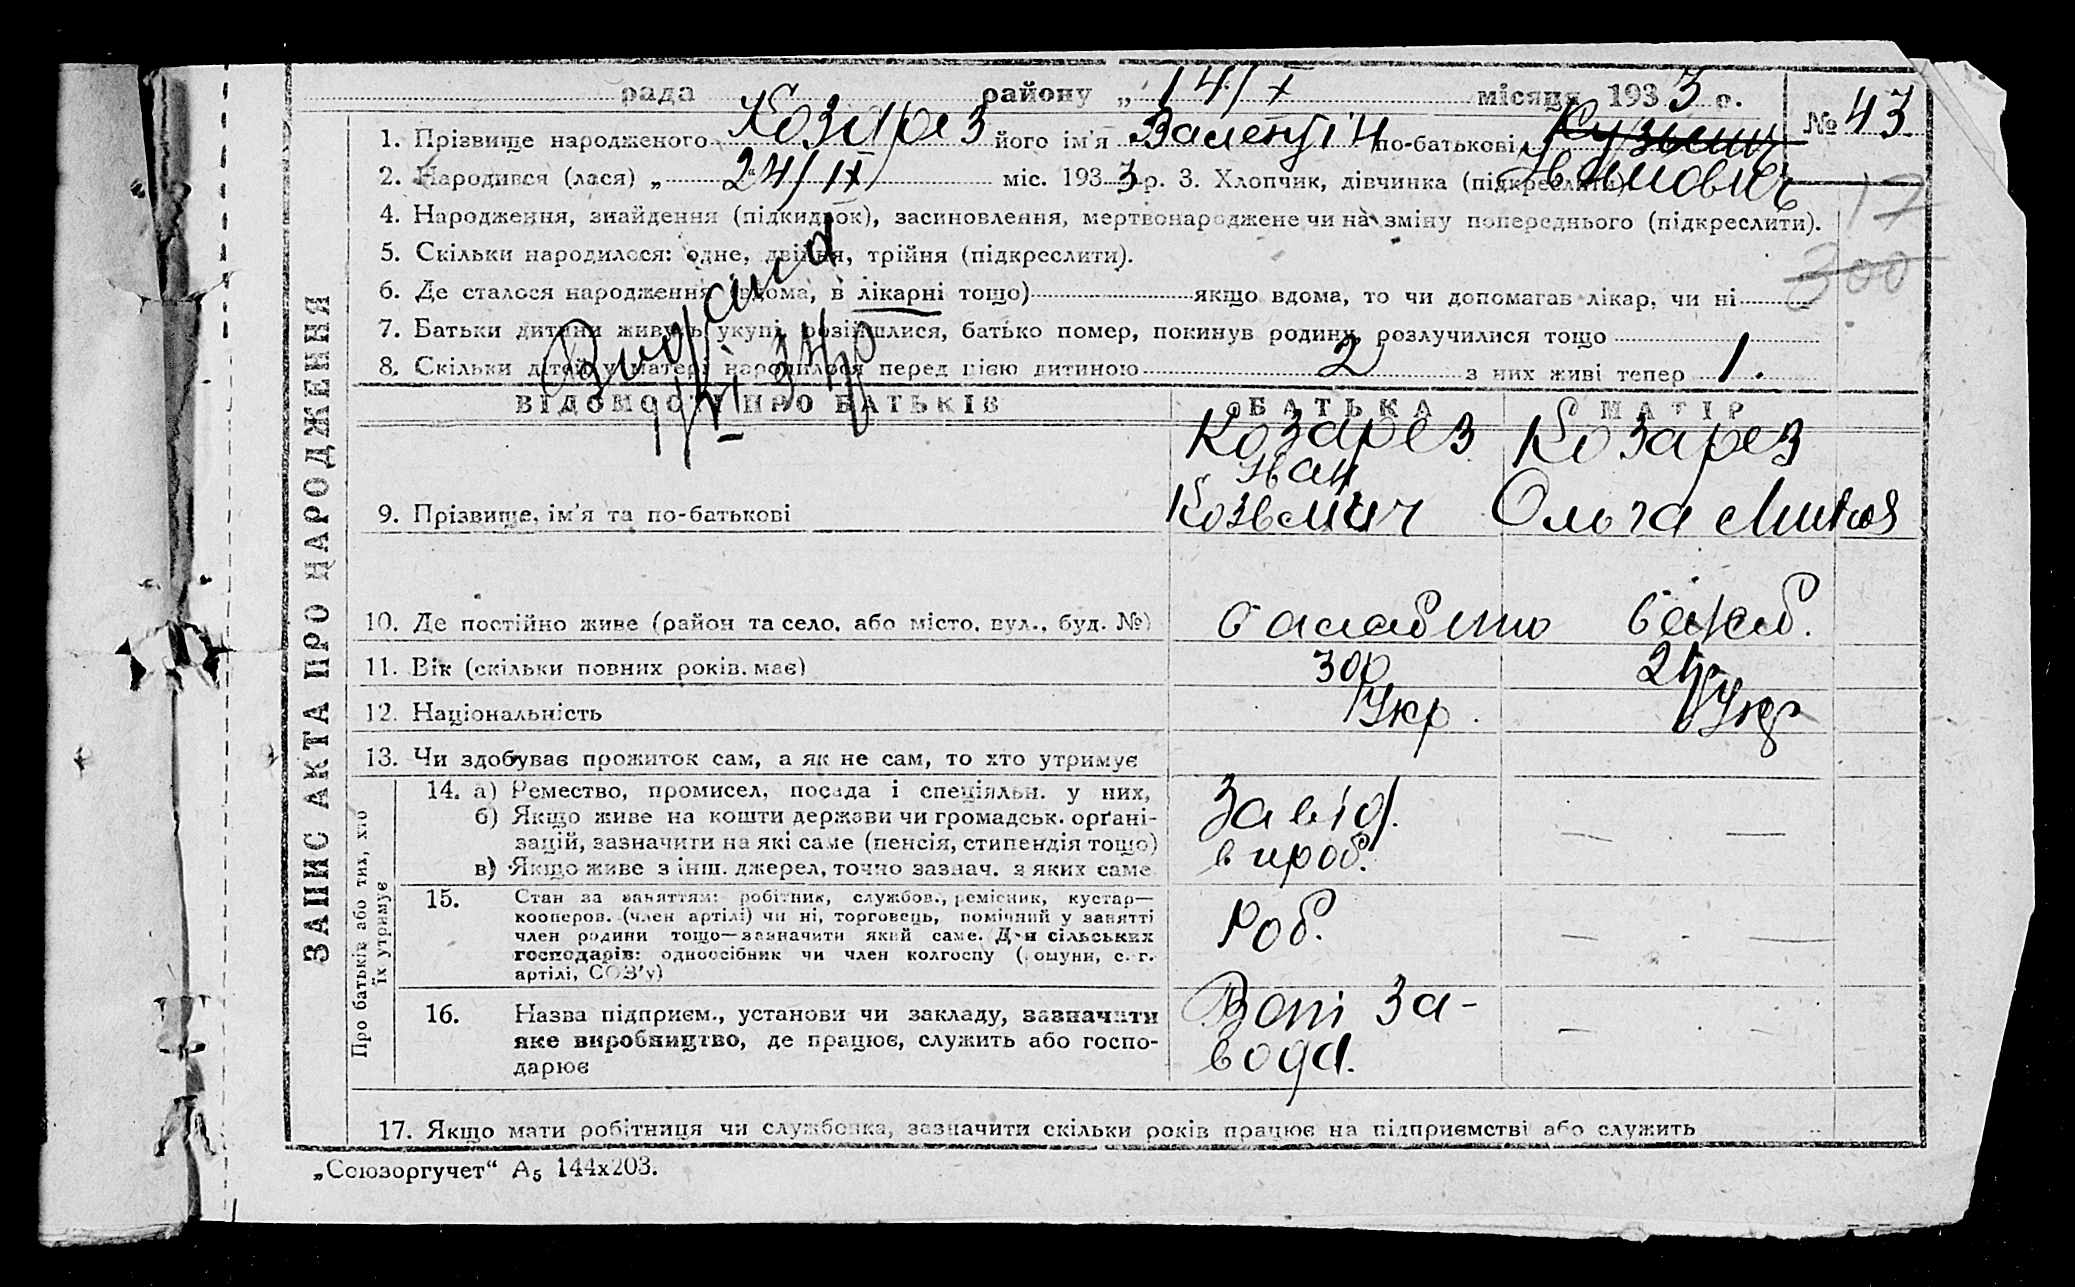 рада району „ 14/X місяця 1933 р. № 43
1. Прізвище народженого Козарез його ім'я Валентін по-батькові Іванович
2. Народився (лася) „ 24/IX міс. 1933 р. 3. Хлопчик, дівчинка (підкреслити)
17
4. Народження, знайдення (підкидьок), засиновлення, мертвонароджене чи на зміну попереднього (підкреслити).
5. Скільки народилося: одне, двійня, трійня (підкреслити).
300
6. Де сталося народження (вдома, в лікарні тощо) якщо вдома, то чи допомагав лікар, чи ні
7. Батьки дитини живуть укупі, розійшлися, батько помер, покинув родину, розлучилися тощо
8. Скільки дітей у матері народилося перед цією дитиною 2 з них живі тепер 1.
ВІДОМОСТІ ПРО БАТЬКІВ БАТЬКА МАТІР
Козарез Козарез
Іван
9. Прізвище, ім'я та по-батькові Козьмич Ольга
10. Де постійно живе (район та село, або місто, вул., буд. №)
11. Вік (скільки повних років має) 30р
12. Національність Укр. Укр
13. Чи здобуває прожиток сам, а як не сам, то хто утримує
14. а) Ремество, промисел, посада і спеціяльн. у них,
б) Якщо живе на кошти держави чи громадськ. орґані-
зацій, зазначити на які саме (пенсія, стипендія тощо)
в) Якщо живе з інш. джерел, точно зазнач. з яких саме
Завід.
вироб.
15. Стан за заняттям: робітник, службов., ремісник, кустар—
кооперов. (член артілі) чи ні, торговець, помічний у занятті
член родини тощо—зазначити який саме. Для сільських
господарів: одноосібник чи член колгоспу (комуни, с.-г.
артілі, СОЗ'у)
Роб.
16. Назва підприєм., установи чи закладу, зазначити
яке виробництво, де працює, служить або госпо-
дарює
за-
вода.
17. Якщо мати робітниця чи службовка, зазначити скільки років працює на підприємстві або служить
„Союзоргучет“ А5 144х203.
ЗАПИС АКТА ПРО НАРОДЖЕННЯ
Про батьків або тих, хто
їх утримує